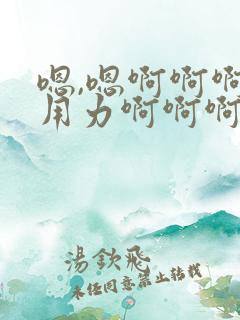 嗯,嗯啊啊啊
用力啊啊啊
湯欽飛
未經同意禁止轉載